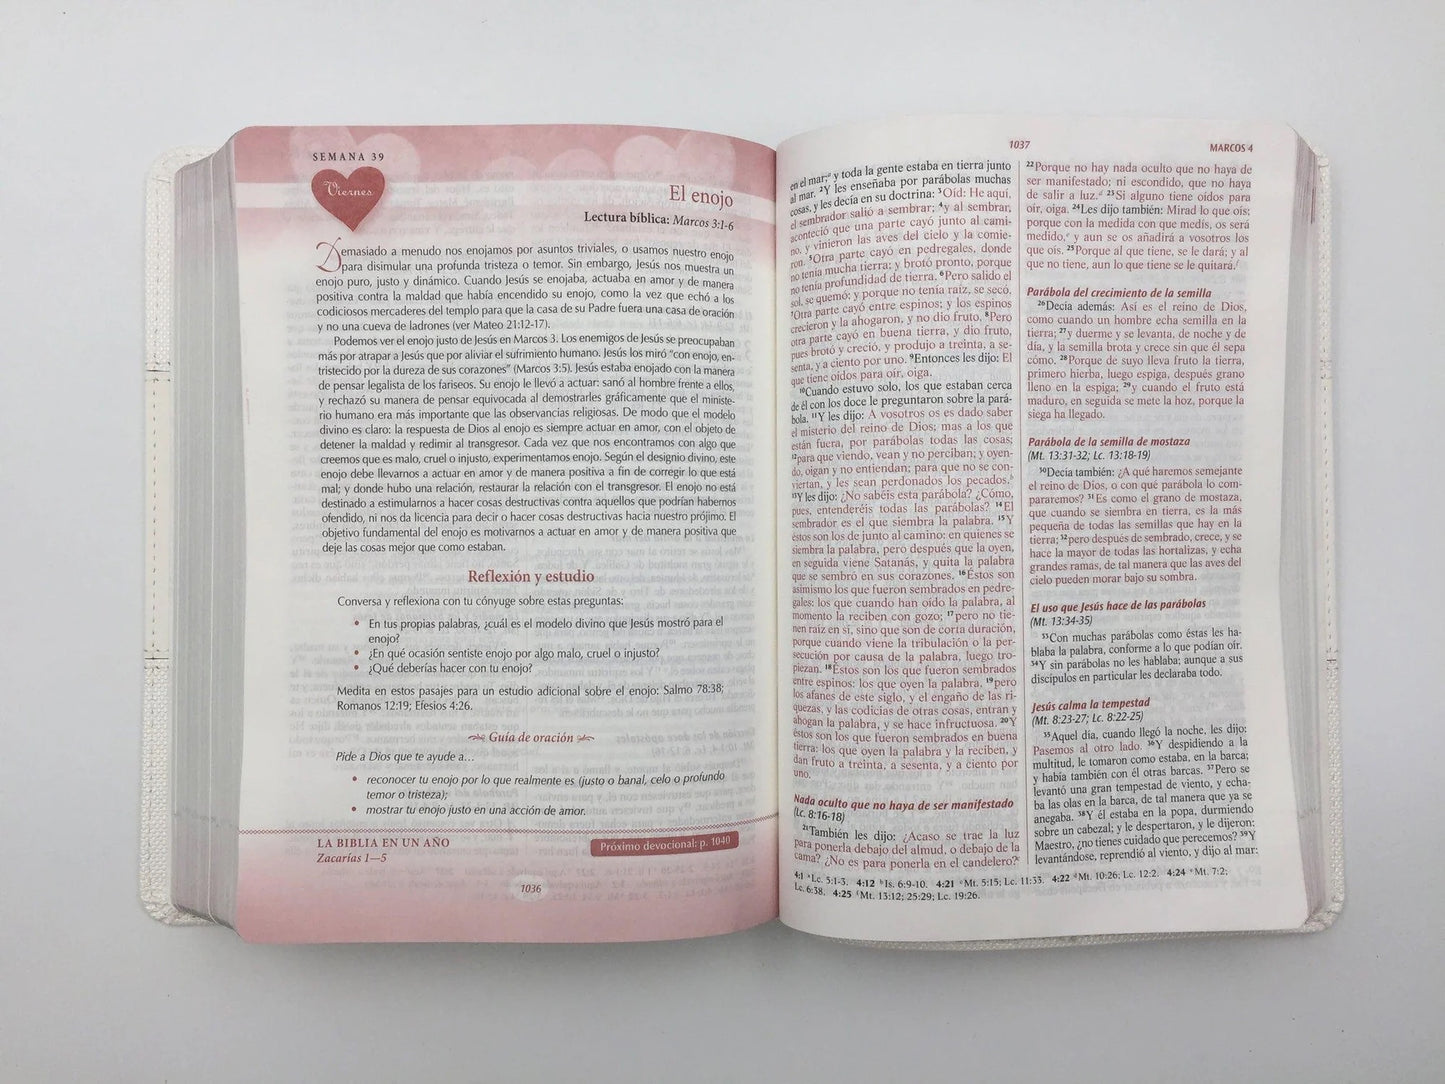 SEMANA 39
Viernes
El enojo
Lectura bíblica: Marcos 3:1-6
Demasiado a menudo nos enojamos por asuntos triviales, o usamos nuestro enojo
para disimular una profunda tristeza o temor. Sin embargo, Jesús nos muestra un
enojo puro, justo y dinámico. Cuando Jesús se enojaba, actuaba en amor y de manera
positiva contra la maldad que había encendido su enojo, como la vez que echó a los
codiciosos mercaderes del templo para que la casa de su Padre fuera una casa de oración
y no una cueva de ladrones (ver Mateo 21:12-17).
Podemos ver el enojo justo de Jesús en Marcos 3. Los enemigos de Jesús se preocupaban
más por atrapar a Jesús que por aliviar el sufrimiento humano. Jesús los miró “con enojo, en-
tristecido por la dureza de sus corazones” (Marcos 3:5). Jesús estaba enojado con la manera
de pensar legalista de los fariseos. Su enojo le llevó a actuar: sanó al hombre frente a ellos,
y rechazó su manera de pensar equivocada al demostrarles gráficamente que el ministe-
rio humano era más importante que las observancias religiosas. De modo que el modelo
divino es claro: la respuesta de Dios al enojo es siempre actuar en amor, con el objeto de
detener la maldad y redimir al transgresor. Cada vez que nos encontramos con algo que
creemos que es malo, cruel o injusto, experimentamos enojo. Según el designio divino, este
enojo debe llevarnos a actuar en amor y de manera positiva a fin de corregir lo que está
mal; y donde hubo una relación, restaurar la relación con el transgresor. El enojo no está
destinado a estimularnos a hacer cosas destructivas contra aquellos que podrían habernos
ofendido, ni nos da licencia para decir o hacer cosas destructivas hacia nuestro prójimo. El
objetivo fundamental del enojo es motivarnos a actuar en amor y de manera positiva que
deje las cosas mejor que como estaban.
Reflexión y estudio
Conversa y reflexiona con tu cónyuge sobre estas preguntas:
• En tus propias palabras, ¿cuál es el modelo divino que Jesús mostró para el
enojo?
• ¿En qué ocasión sentiste enojo por algo malo, cruel o injusto?
• ¿Qué deberías hacer con tu enojo?
Medita en estos pasajes para un estudio adicional sobre el enojo: Salmo 78:38;
Romanos 12:19; Efesios 4:26.
Guía de oración
Pide a Dios que te ayude a…
• reconocer tu enojo por lo que realmente es (justo o banal, celo o profundo
temor o tristeza);
• mostrar tu enojo justo en una acción de amor.
LA BIBLIA EN UN AÑO
Zacarías 1—5
Próximo devocional: p. 1040
1036
1037
MARCOS 4
en el mar;ᵃ y toda la gente estaba en tierra junto
al mar. ²Y les enseñaba por parábolas muchas
cosas, y les decía en su doctrina: ³Oíd: He aquí,
el sembrador salió a sembrar; ⁴y al sembrar,
aconteció que una parte cayó junto al cami-
no, y vinieron las aves del cielo y la comie-
ron. ⁵Otra parte cayó en pedregales, donde
no tenía mucha tierra; y brotó pronto, porque
no tenía profundidad de tierra. ⁶Pero salido el
sol, se quemó; y porque no tenía raíz, se secó.
⁷Otra parte cayó entre espinos; y los espinos
crecieron y la ahogaron, y no dio fruto. ⁸Pero
otra parte cayó en buena tierra, y dio fruto,
pues brotó y creció, y produjo a treinta, a se-
senta, y a ciento por uno. ⁹Entonces les dijo: El
que tiene oídos para oír, oiga.
¹⁰Cuando estuvo solo, los que estaban cerca
de él con los doce le preguntaron sobre la pará-
bola. ¹¹Y les dijo: A vosotros os es dado saber
el misterio del reino de Dios; mas a los que
están fuera, por parábolas todas las cosas;
¹²para que viendo, vean y no perciban; y oyen-
do, oigan y no entiendan; para que no se con-
viertan, y les sean perdonados los pecados.ᵇ
¹³Y les dijo: ¿No sabéis esta parábola? ¿Cómo,
pues, entenderéis todas las parábolas? ¹⁴El
sembrador es el que siembra la palabra. ¹⁵Y
éstos son los de junto al camino: en quienes se
siembra la palabra, pero después que la oyen,
en seguida viene Satanás, y quita la palabra
que se sembró en sus corazones. ¹⁶Éstos son
asimismo los que fueron sembrados en pedre-
gales: los que cuando han oído la palabra, al
momento la reciben con gozo; ¹⁷pero no tie-
nen raíz en sí, sino que son de corta duración,
porque cuando viene la tribulación o la per-
secución por causa de la palabra, luego tro-
piezan. ¹⁸Éstos son los que fueron sembrados
entre espinos: los que oyen la palabra, ¹⁹pero
los afanes de este siglo, y el engaño de las ri-
quezas, y las codicias de otras cosas, entran y
ahogan la palabra, y se hace infructuosa. ²⁰Y
éstos son los que fueron sembrados en buena
tierra: los que oyen la palabra y la reciben, y
dan fruto a treinta, a sesenta, y a ciento por
uno.
Nada oculto que no haya de ser manifestado
(Lc. 8:16-18)
²¹También les dijo: ¿Acaso se trae la luz
para ponerla debajo del almud, o debajo de la
cama? ¿No es para ponerla en el candelero?ᶜ
²²Porque no hay nada oculto que no haya de
ser manifestado; ni escondido, que no haya
de salir a luz.ᵈ ²³Si alguno tiene oídos para
oír, oiga. ²⁴Les dijo también: Mirad lo que oís;
porque con la medida con que medís, os será
medido,ᵉ y aun se os añadirá a vosotros los
que oís. ²⁵Porque al que tiene, se le dará; y al
que no tiene, aun lo que tiene se le quitará.ᶠ
Parábola del crecimiento de la semilla
²⁶Decía además: Así es el reino de Dios,
como cuando un hombre echa semilla en la
tierra; ²⁷y duerme y se levanta, de noche y de
día, y la semilla brota y crece sin que él sepa
cómo. ²⁸Porque de suyo lleva fruto la tierra,
primero hierba, luego espiga, después grano
lleno en la espiga; ²⁹y cuando el fruto está
maduro, en seguida se mete la hoz, porque la
siega ha llegado.
Parábola de la semilla de mostaza
(Mt. 13:31-32; Lc. 13:18-19)
³⁰Decía también: ¿A qué haremos semejante
el reino de Dios, o con qué parábola lo com-
pararemos? ³¹Es como el grano de mostaza,
que cuando se siembra en tierra, es la más
pequeña de todas las semillas que hay en la
tierra; ³²pero después de sembrado, crece, y se
hace la mayor de todas las hortalizas, y echa
grandes ramas, de tal manera que las aves del
cielo pueden morar bajo su sombra.
El uso que Jesús hace de las parábolas
(Mt. 13:34-35)
³³Con muchas parábolas como éstas les ha-
blaba la palabra, conforme a lo que podían oír.
³⁴Y sin parábolas no les hablaba; aunque a sus
discípulos en particular les declaraba todo.
Jesús calma la tempestad
(Mt. 8:23-27; Lc. 8:22-25)
³⁵Aquel día, cuando llegó la noche, les dijo:
Pasemos al otro lado. ³⁶Y despidiendo a la
multitud, le tomaron como estaba, en la barca;
y había también con él otras barcas. ³⁷Pero se
levantó una gran tempestad de viento, y echa-
ba las olas en la barca, de tal manera que ya se
anegaba. ³⁸Y él estaba en la popa, durmiendo
sobre un cabezal; y le despertaron, y le dijeron:
Maestro, ¿no tienes cuidado que perecemos? ³⁹Y
levantándose, reprendió al viento, y dijo al mar:
4:1 ᵃLc. 5:1-3. 4:12 ᵇIs. 6:9-10. 4:21 ᶜMt. 5:15; Lc. 11:33. 4:22 ᵈMt. 10:26; Lc. 12:2. 4:24 ᵉMt. 7:2;
Lc. 6:38. 4:25 ᶠMt. 13:12; 25:29; Lc. 19:26.